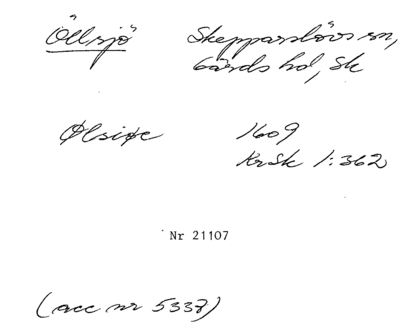 Öllsjö Skepparslövs sn,
Gärds hd, Sk
Ølsiøe 1609
KrSk 1:362
Nr 21107
(acc nr 5337)